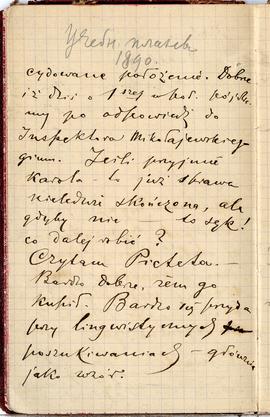 1890.
cydowane położenie. Dobrze
iż dziś o 1szej w poł. pójdzie-
my po odpowiedź do
Inspektora Mikołajewskiego
gimn. Jeśli przyjmie
Karola – to już sprawa
nieledwie skończona, ale
gdyby nie to sęk!
co dalej robić?
Czytam Picteta. –
Bardzo dobrze, żem go
kupił. Bardzo się przyda
przy lingwistycznych
poszukiwaniach – głównie
jako wzór.